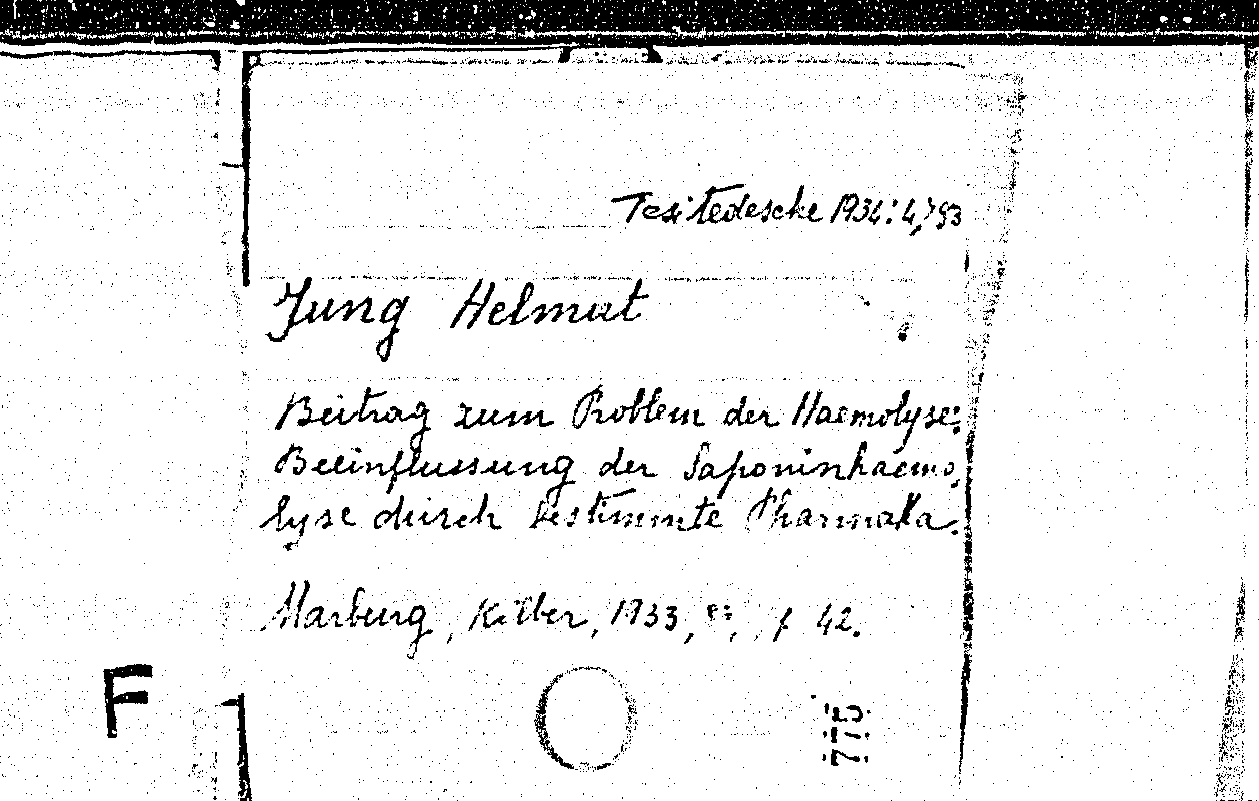 Tesi tedesche 1934: 4,793
Jung Helmut
Beitrag zum Problem der Haemolyse:
Beeinflussung der Saponinhaemo,
lyse durch bestimmte Pharmaka.
Marburg, 1933, 8°, 42.
F
775